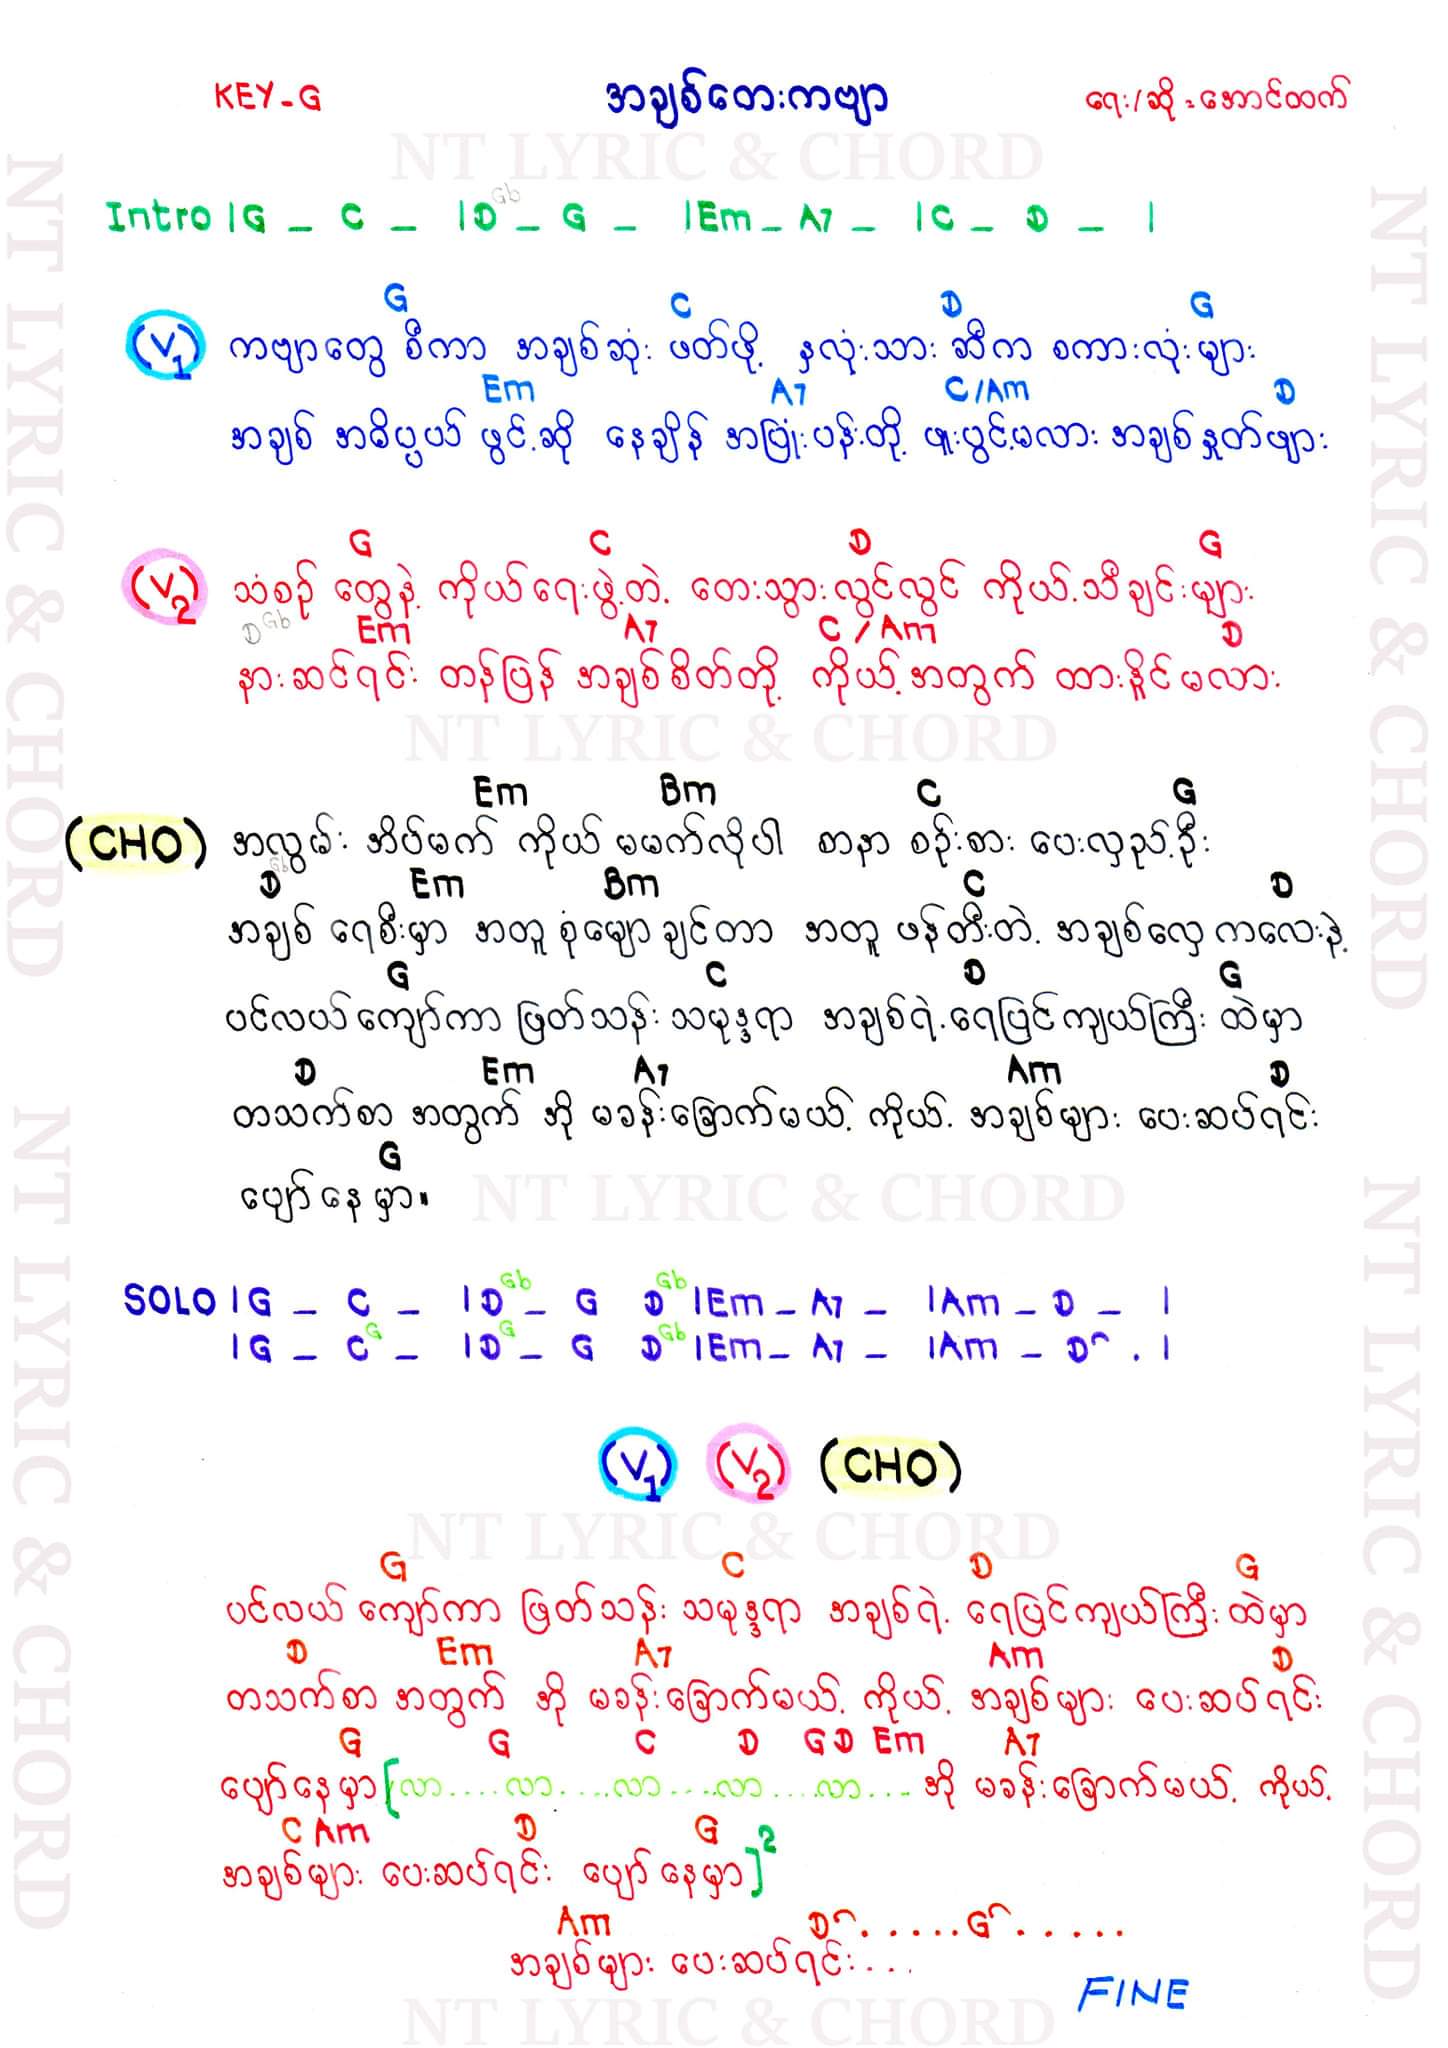 KEY-G အချစ်တေးကဗျာ ရေး/ဆို = အောင်ထက်
NT LYRIC & CHORD
Intro |G _ C _ |D Gb _ G _ |Em _ A7 _ |C _ D _ |
G C D G
(V1) ကဗျာတွေ စီကာ အချစ်ဆုံး ဖတ်ဖို့ နှလုံးသား ဆီက စကားလုံးများ
Em A7 C/Am D
အချစ် အဓိပ္ပယ် ဖွင့်ဆို နေချိန် အပြုံးပန်းတို့ ဖူးပွင့်မလား အချစ်နှုတ်ဖျား
G C D G
(V2) သံစဉ် တွေနဲ့ ကိုယ်ရေးဖွဲ့တဲ့ တေးသွားလွင်လွင် ကိုယ့်သီချင်းများ
D Gb Em A7 C / Am D
နားဆင်ရင်း တန်ပြန် အချစ်စိတ်တို့ ကိုယ့်အတွက် ထားနိူင်မလား
NT LYRIC & CHORD
Em Bm C G
(CHO) အလွမ်း အိပ်မက် ကိုယ် မမက်လိုပါ စာနာ စဉ်းစား ပေးလှည့်ဦး
D Gb Em Bm C D
အချစ် ရေစီးမှာ အတူ စုံမျောချင်တာ အတူ ဖန်တီးတဲ့ အချစ်လှေ ကလေးနဲ့
G C D G
ပင်လယ်ကျော်ကာ ဖြတ်သန်း သမုဒ္ဒရာ အချစ်ရဲ့ရေပြင်ကျယ်ကြီး ထဲမှာ
D Em A7 Am D
တသက်စာ အတွက် အို မခန်းခြောက်မယ့် ကိုယ့် အချစ်များ ပေးဆပ်ရင်း
G
ပျော်နေမှာ။
NT LYRIC & CHORD
SOLO |G _ C _ |D Gb _ G D Gb |Em _ A7 _ |Am _ D _ |
|G _ C G _ |D G _ G D Gb |Em _ A7 _ |Am _ D . |
(V1) (V2) (CHO)
NT LYRIC & CHORD
G C D G
ပင်လယ်ကျော်ကာ ဖြတ်သန်း သမုဒ္ဒရာ အချစ်ရဲ့ ရေပြင်ကျယ်ကြီး ထဲမှာ
D Em A7 Am D
တသက်စာ အတွက် အို မခန်းခြောက်မယ့် ကိုယ့် အချစ်များ ပေးဆပ်ရင်း
G G C D G D Em A7
ပျော်နေမှာ [လာ....လာ....လာ....လာ....လာ... အို မခန်းခြောက်မယ့် ကိုယ့်
C Am D G
အချစ်များ ပေးဆပ်ရင်း ပျော်နေမှာ]2
Am D.....G.....
အချစ်များ ပေးဆပ်ရင်း...
FINE
NT LYRIC & CHORD
NT LYRIC & CHORD
NT LYRIC & CHORD
NT LYRIC & CHORD
NT LYRIC & CHORD